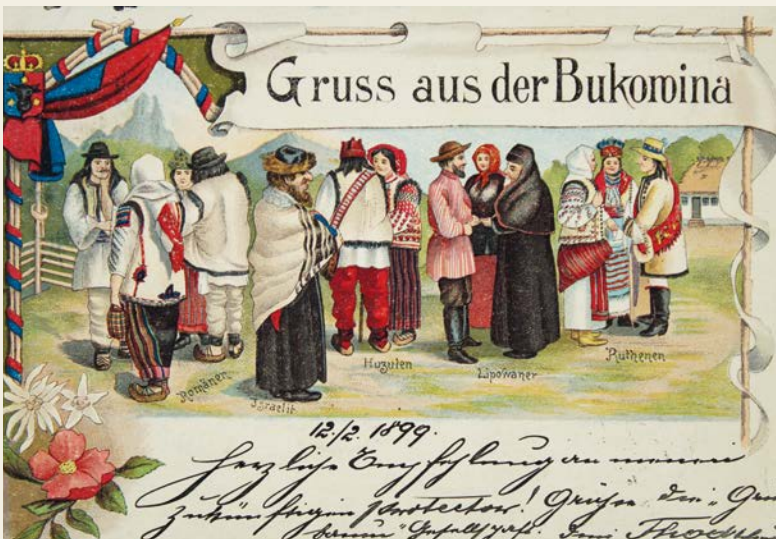 Gruss aus der Bukowina
Romänen
Israelit
Huzulen
Lipowaner
Ruthenen
12./2. 1899.
Herzliche Empfehlung an meinen
zukünftigen Protector! Grüße die "
"Gesellschaft.